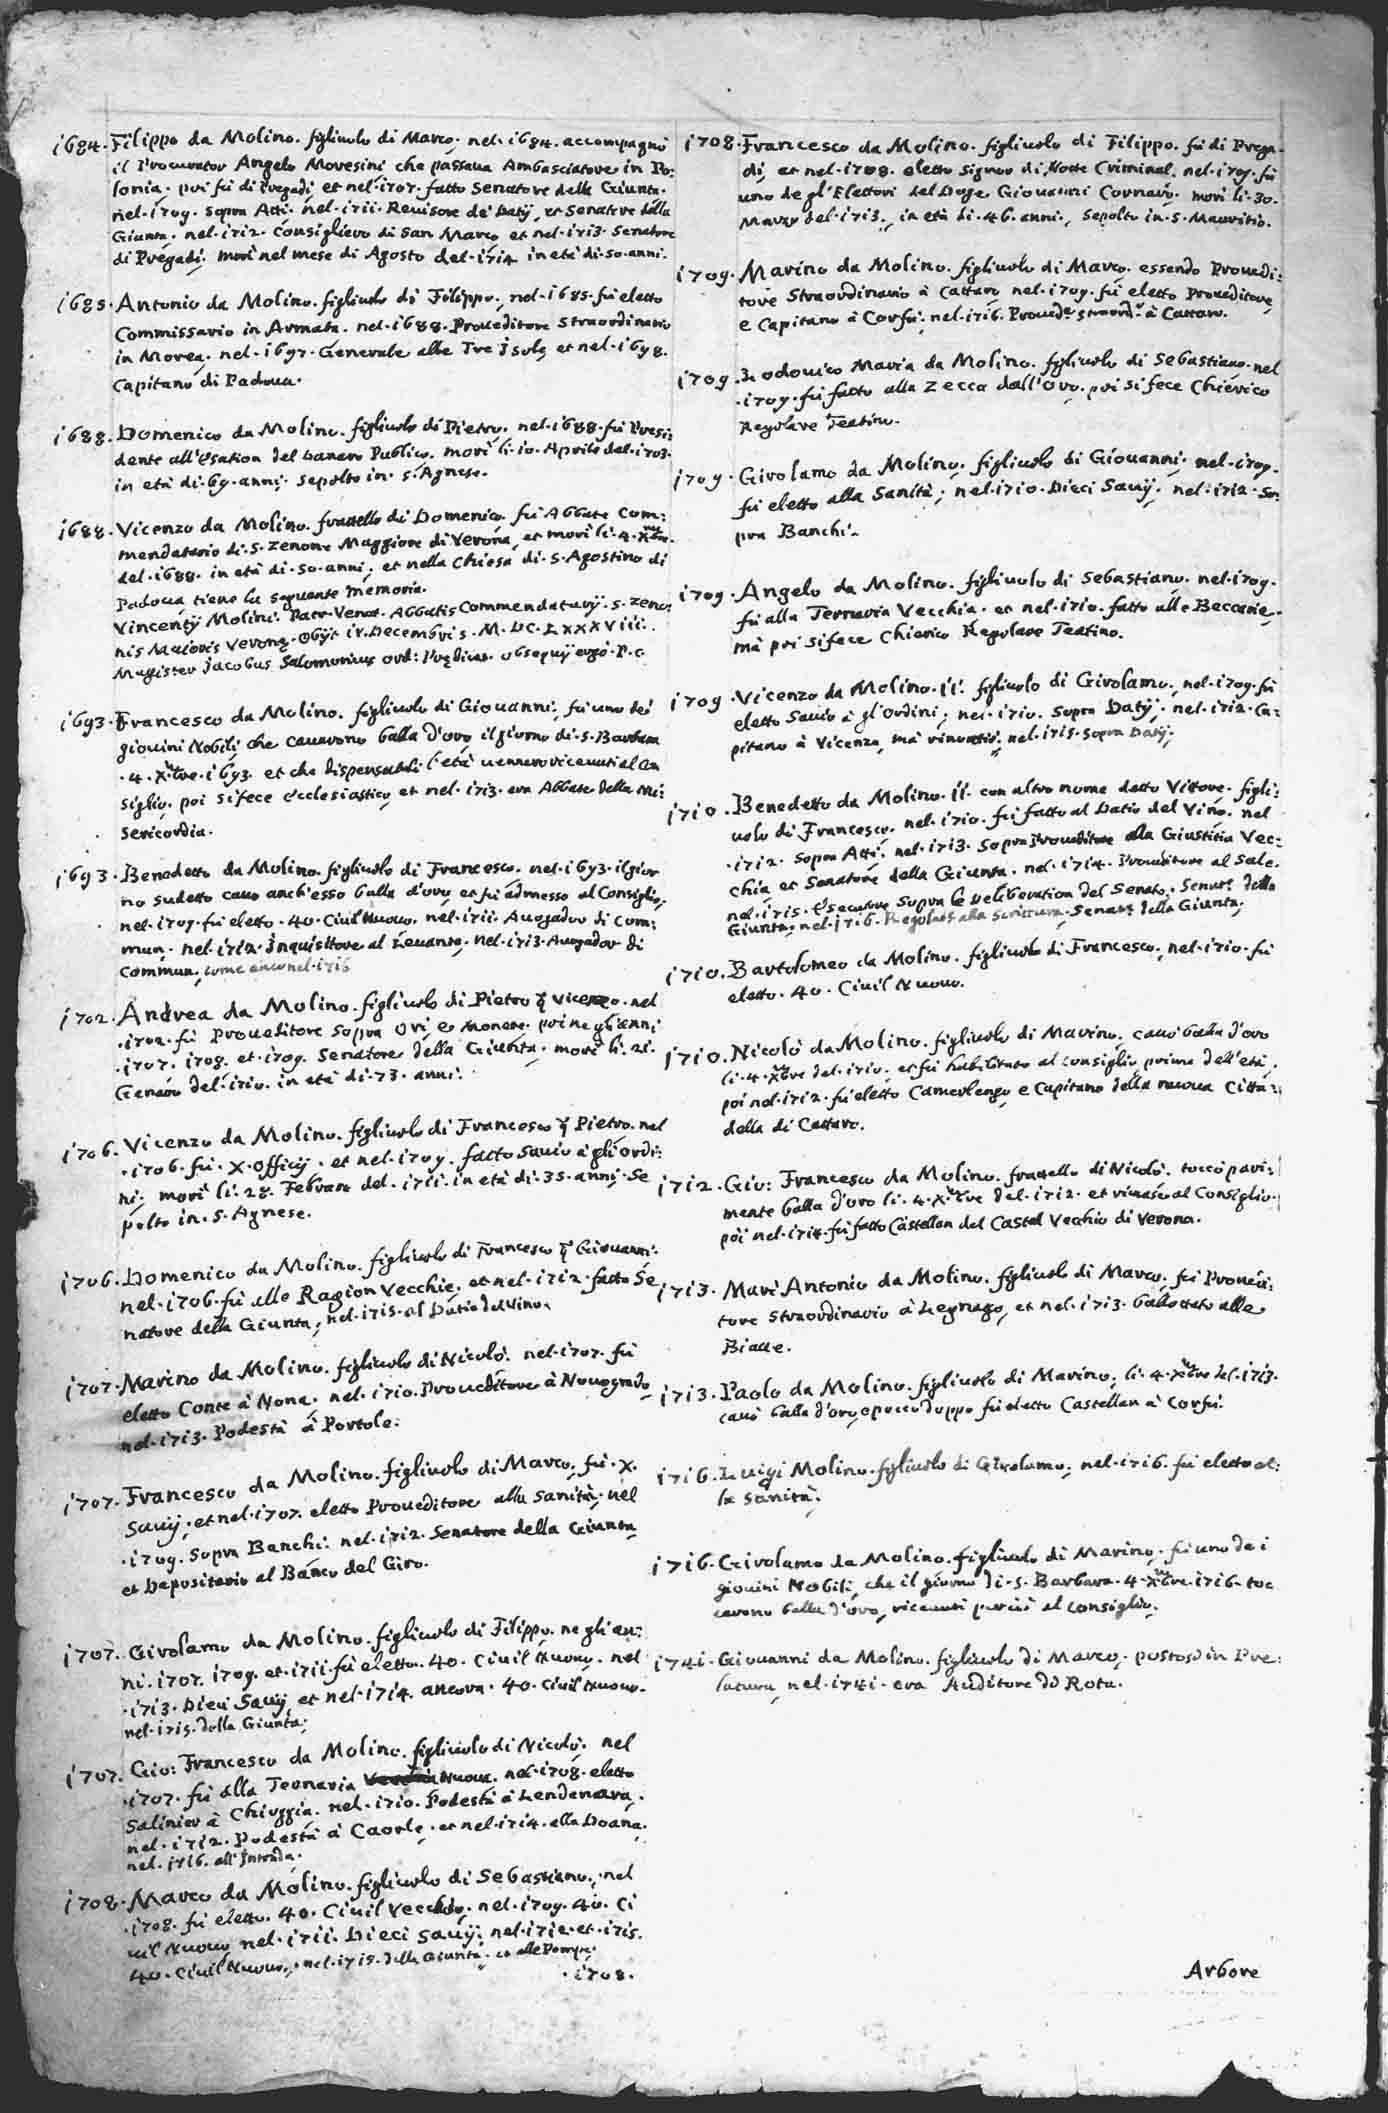 1684. Filippo da Molino. figliuolo di Marco. nel. 1684. accompagnò
il Procurator Angelo Moresini che passaua Ambasciatore in Po:
lonia. poi fù di Pregadi, et nel. 1707. fatto Senatore della Giunta.
nel. 1709. sopra Atti. nel. 1711. Reuisore de' Datij, et Senatore della
Giunta. nel. 1712. Consigliero di San Marco et nel. 1713. Senatore
di Pregadi. morì nel mese di Agosto del. 1714 in età di. 50. anni.
1685. Antonio da Molino. figliuolo di Filippo, nel. 1685. fù eletto
Commissario in Armata. nel. 1688. Proueditore Straordinario
in Morea. nel. 1697. Generale alle Tre Isole, et nel. 1698.
Capitanò di Padoua.
1688. Domenico da Molino. figliuolo di Pietro. nel. 1688. fù Presi:
dente all'Esation del Danaro Publico. morì li. 10. Aprile del. 1703.
in età di. 69. anni. sepolto in. S. Agnese.
1688. Vicenzo da Molino. frattello di Domenico, fù Abbate Com:
mendatario di. S. Zenone Maggiore di Verona, et morì li. 4. Xbre.
del. 1688. in età di. 50. anni. et nella Chiesa di. S. Agostino di
Padoua tiene la seguente memoria.
Vincentij Molini. Patr. Venet. Abbatis Commendatarij. S. Zeno:
nis Maioris Veronę. Obijt. iv. Decembris. M. DC. LXXXVIII.
Magister Jacobus Salomonius ord: Prędicat. obsequij ergò. P. C.
1693. Francesco da Molino. figliuolo di Giouanni, fù uno dei
giouini Nobili, che cauarono balla d'oro il giorno di. S. Barbara
. 4. Xbre. 1693. et che dispensati l'età uennero riceuuti al Con
siglio. poi si fece ecclesiastico, et nel. 1713. era Abbate della Mi:
sericordia.
1693. Benedetto da Molino. figliuolo di Francesco. nel. 1693. il gior
no sudetto cauò anch'esso balla d'oro, et fù admesso al Consiglio,
nel. 1707. fù eletto. 40. Ciuil Nuouo. nel. 1711. Auogador di Com:
mun. nel. 1712. Inquisitore al Leuante. nel. 1713. Auogador di
Commun, come anco nel. 1716
1702. Andrea da Molino. figliuolo di Pietro q. Vicenzo. nel
. 1702. fù Proueditore sopra Ori, e Monete. poi negli anni
. 1707. 1708. et. 1709. Senatore della Giunta. morì li. 21.
Genaro del. 1710. in età di. 73. anni.
1706. Vicenzo da Molino. figliuolo di Francesco q. Pietro. nel
. 1706. fù. X. Officij. et nel. 1709. fatto Sauio à gli ordi:
ni. morì li. 28. Febraro del. 1711. in età di. 35. anni. Se
polto in. S. Agnese.
1706. Domenico da Molino. figliuolo di Francesco q. Giouanni.
nel. 1706. fù alle Ragion Vecchie, et nel. 1712. fatto Se
natore della Giunta, nel. 1715. al Datio del Vino.
1707. Marino da Molino. figliuolo di Nicolò. nel. 1707. fù
eletto Conte à Nona. nel. 1710. Proueditore à Nouogrado,
nel. 1713. Podestà à Portole.
1707. Francesco da Molino. figliuolo di Marco, fù. X.
Sauij, et nel. 1707. eletto Proueditore alla Sanità, nel
. 1709. sopra Banchi. nel. 1712. Senatore della Giunta
et Depositario al Banco del Giro.
1707. Girolamo da Molino. figliuolo di Filippo. negli an:
ni. 1707. 1709. et. 1711. fù eletto. 40. Ciuil Nuouo. nel
. 1713. Dieci Sauij, et nel. 1714. ancora. 40. Ciuil Nuouo.
nel. 1715. della Giunta.
1707. Gio: Francesco da Molino. figliuolo di Nicolò. nel
. 1707. fù alla Ternaria Nuoua. nel. 1708. eletto
Salinier à Chioggia. nel. 1710. Podestà à Lendenara.
nel. 1712. Podestà à Caorle. et nel. 1714. alla Doana.
nel. 1716. all'Intrada.
1708. Marco da Molino. figliuolo di Sebastiano, nel
. 1708. fù eletto. 40. Ciuil Vecchio. nel. 1709. 40. Ci
uil Nuouo, nel. 1711. Dieci Sauij. nel. 1712. et. 1715.
40. Ciuil Nuouo. nel. 1715. della Giunta. et alle Pompe.
. 1708.
1708. Francesco da Molino. figliuolo di Filippo. fù di Prega:
di, et nel. 1708. eletto Signor di Notte Criminal, nel. 1709. fù
uno degl'Elettori del Doge Giouanni Cornaro. morì li. 30.
Marzo del. 1713. in età di. 46. anni, sepolto in. S. Mauritio.
1709. Marino da Molino. figliuolo di Marco. essendo Prouedi:
tore Straordinario à Cattaro nel. 1709. fù eletto Proueditore
e Capitano à Corfù. nel. 1716. Proued.r straord.o à Cattaro.
1709. Lodouico Maria da Molino. figliuolo di Sebastiano. nel
. 1709. fù fatto alla Zecca dall'Oro. poi si fece Chierico
Regolare Teatino.
1709. Girolamo da Molino, figliuolo di Giouanni. nel. 1709.
fù eletto alla Sanità, nel. 1710. Dieci Sauij. nel. 1712. So:
pra Banchi.
1709. Angelo da Molino. figliuolo di Sebastiano. nel. 1709.
fù alla Ternaria Vecchia. et nel. 1710. fatto alle Beccarie,
mà poi si fece Chierico Regolare Teatino.
1709. Vicenzo da Molino. II. figliuolo di Girolamo, nel. 1709. fù
eletto Sauio à gl'ordini, nel. 1710. sopra Datij. nel. 1712. Ca:
pitano à Vicenza, mà rinontiò, nel. 1715. sopra Datij.
1710. Benedetto da Molino. II. con altro nome detto Vittore. figli:
uolo di Francesco. nel. 1710. fù fatto al Datio del Vino. nel
. 1712. sopra Atti. nel. 1713. Sopra Proueditore alla Giustitia Vec:
chia et Senatore della Giunta. nel. 1714. Proueditore al Sale.
nel. 1715. Esecutore sopra le Deliberation del Senato. Senat.r della
Giunta, nel. 1716. Regolat.r alla Scrittura. Senat.r della Giunta.
1710. Bartolomeo da Molino. figliuolo di Francesco, nel. 1710. fù
eletto. 40. Ciuil Nuouo.
1710. Nicolò da Molino. figliuolo di Marino. cauò balla d'oro
li. 4. Xbre del. 1710. et fù habilitato al Consiglio prima dell'età,
poi nel. 1712. fù eletto Camerlengo, e Capitano della nuoua Citta:
della di Cattaro.
1712. Gio: Francesco da Molino. frattello di Nicolò. toccò pari:
mente balla d'oro li. 4. Xbre del. 1712. et rimase al Consiglio.
poi nel. 1714. fù fatto Castellan del Castel Vechio di Verona.
1713. Marc'Antonio da Molino. figliuolo di Marco, fù Prouedi:
tore Straordinario à Legnago, et nel. 1713. ballottato alle
Biaue.
1713. Paolo da Molino. figliuolo di Marino, li. 4. Xbre del. 1713.
cauò balla d'oro, e poco doppo fù eletto Castellan à Corfù.
1716. Luigi Molino. figliuolo di Girolamo, nel. 1716. fù eletto al:
la Sanità.
1716. Girolamo da Molino. figliuolo di Marino. fù uno de i
giouini Nobili, che il giorno di. S. Barbara. 4. Xbre. 1716. toc
carono balla d'oro, riceuuti perciò al Consiglio.
1741. Giouanni da Molino. figliuolo di Marco. postosi in Pre:
latura, nel. 1741. era Auditore di Rota.
Arbore